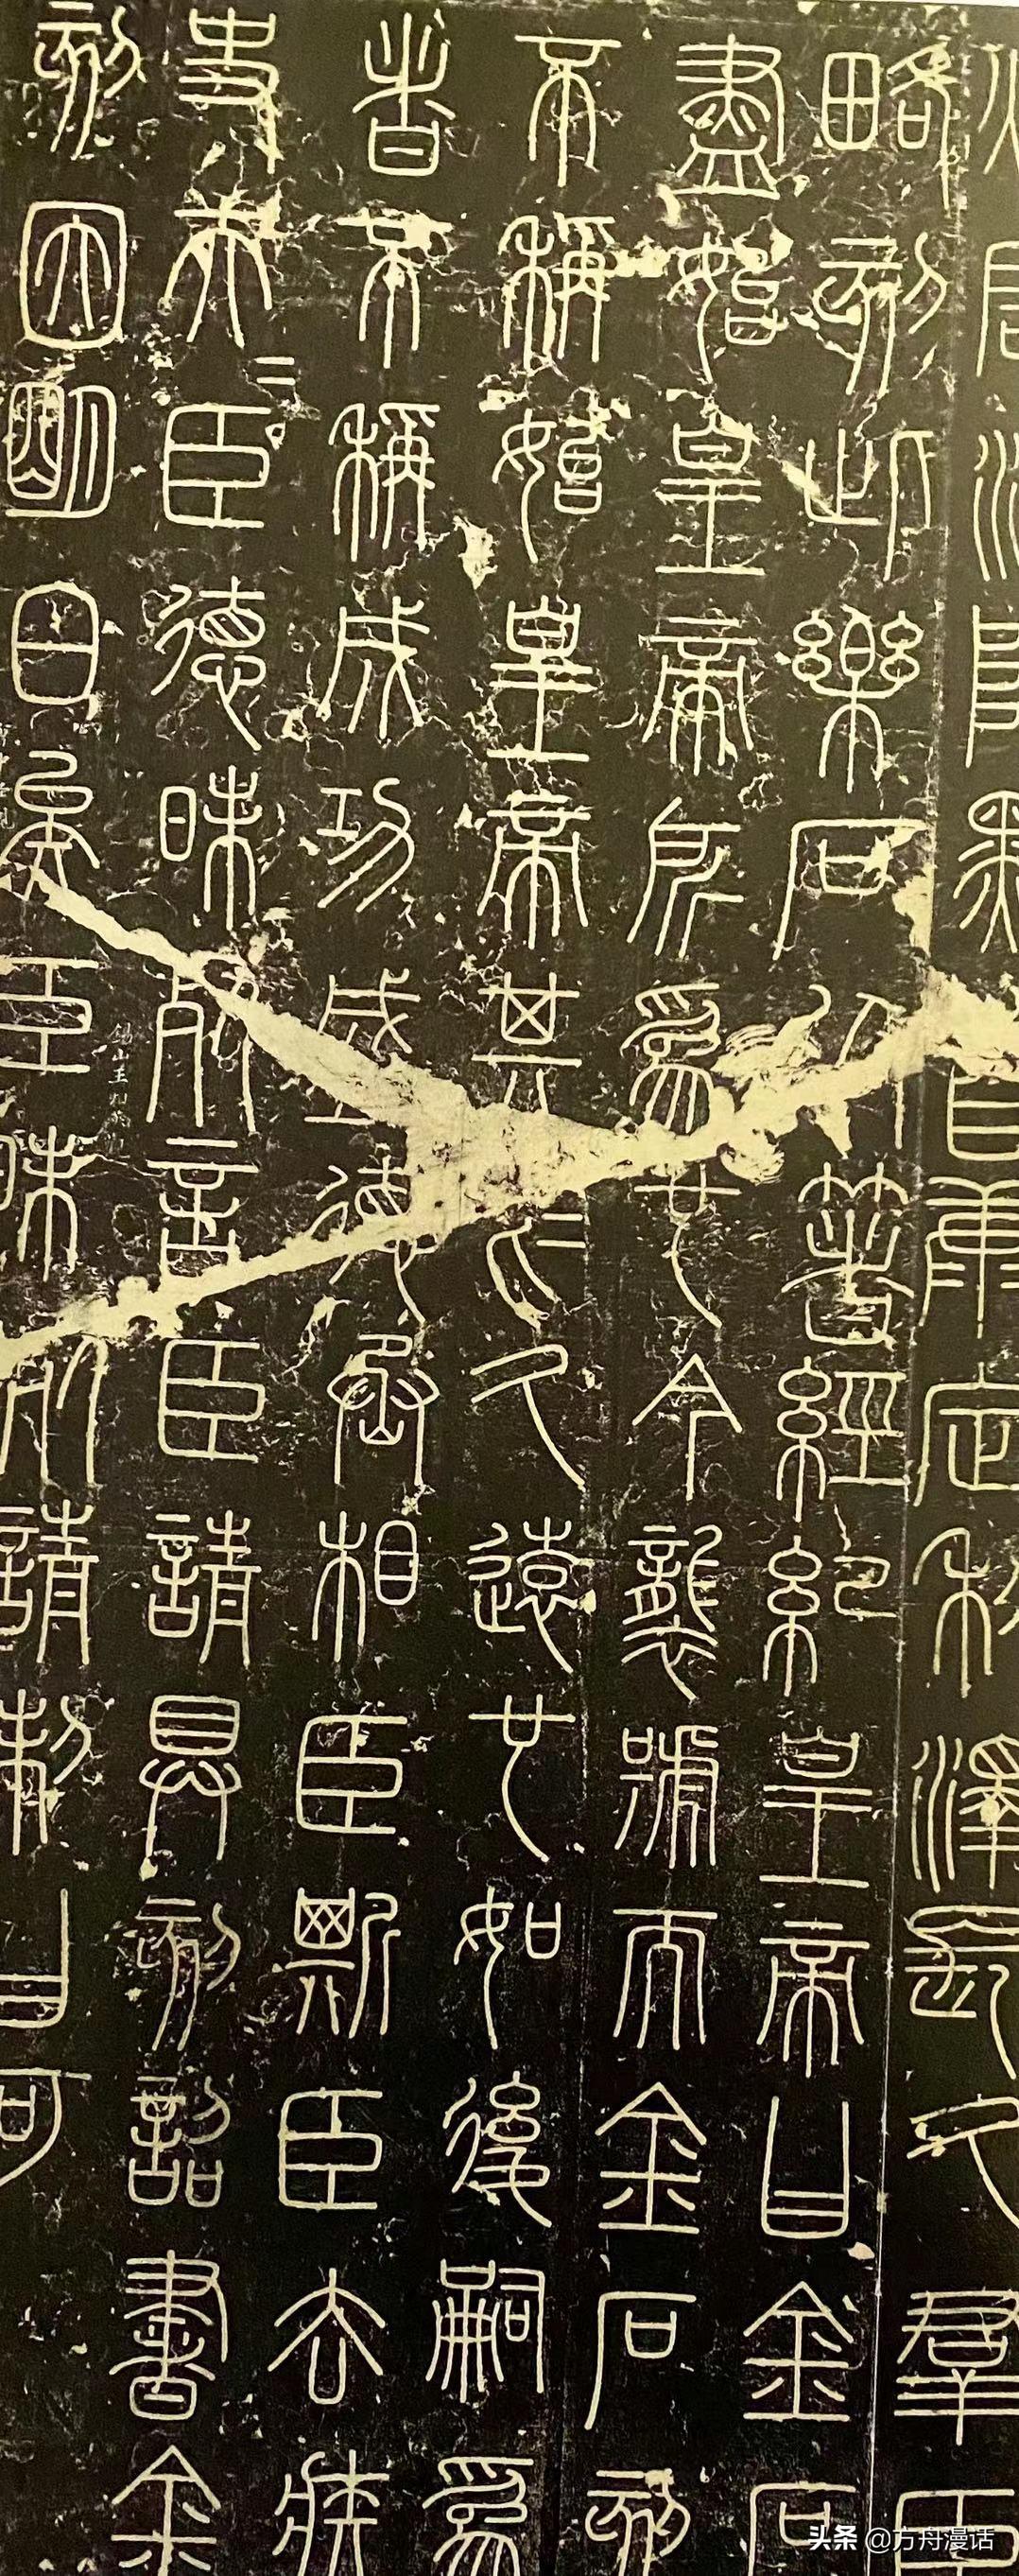 灾害滅除黔首康定利澤長久群臣
略刻此樂石以著經紀皇帝曰金石
盡始皇帝所為也今襲號而金石刻
不稱始皇帝其於久遠也如後嗣為
者不稱成功盛德丞相臣斯臣去疾
史夫＝臣德昧死言臣請具刻詔書金
刻因明白矣臣昧死請制曰可
头条 @方舟漫话